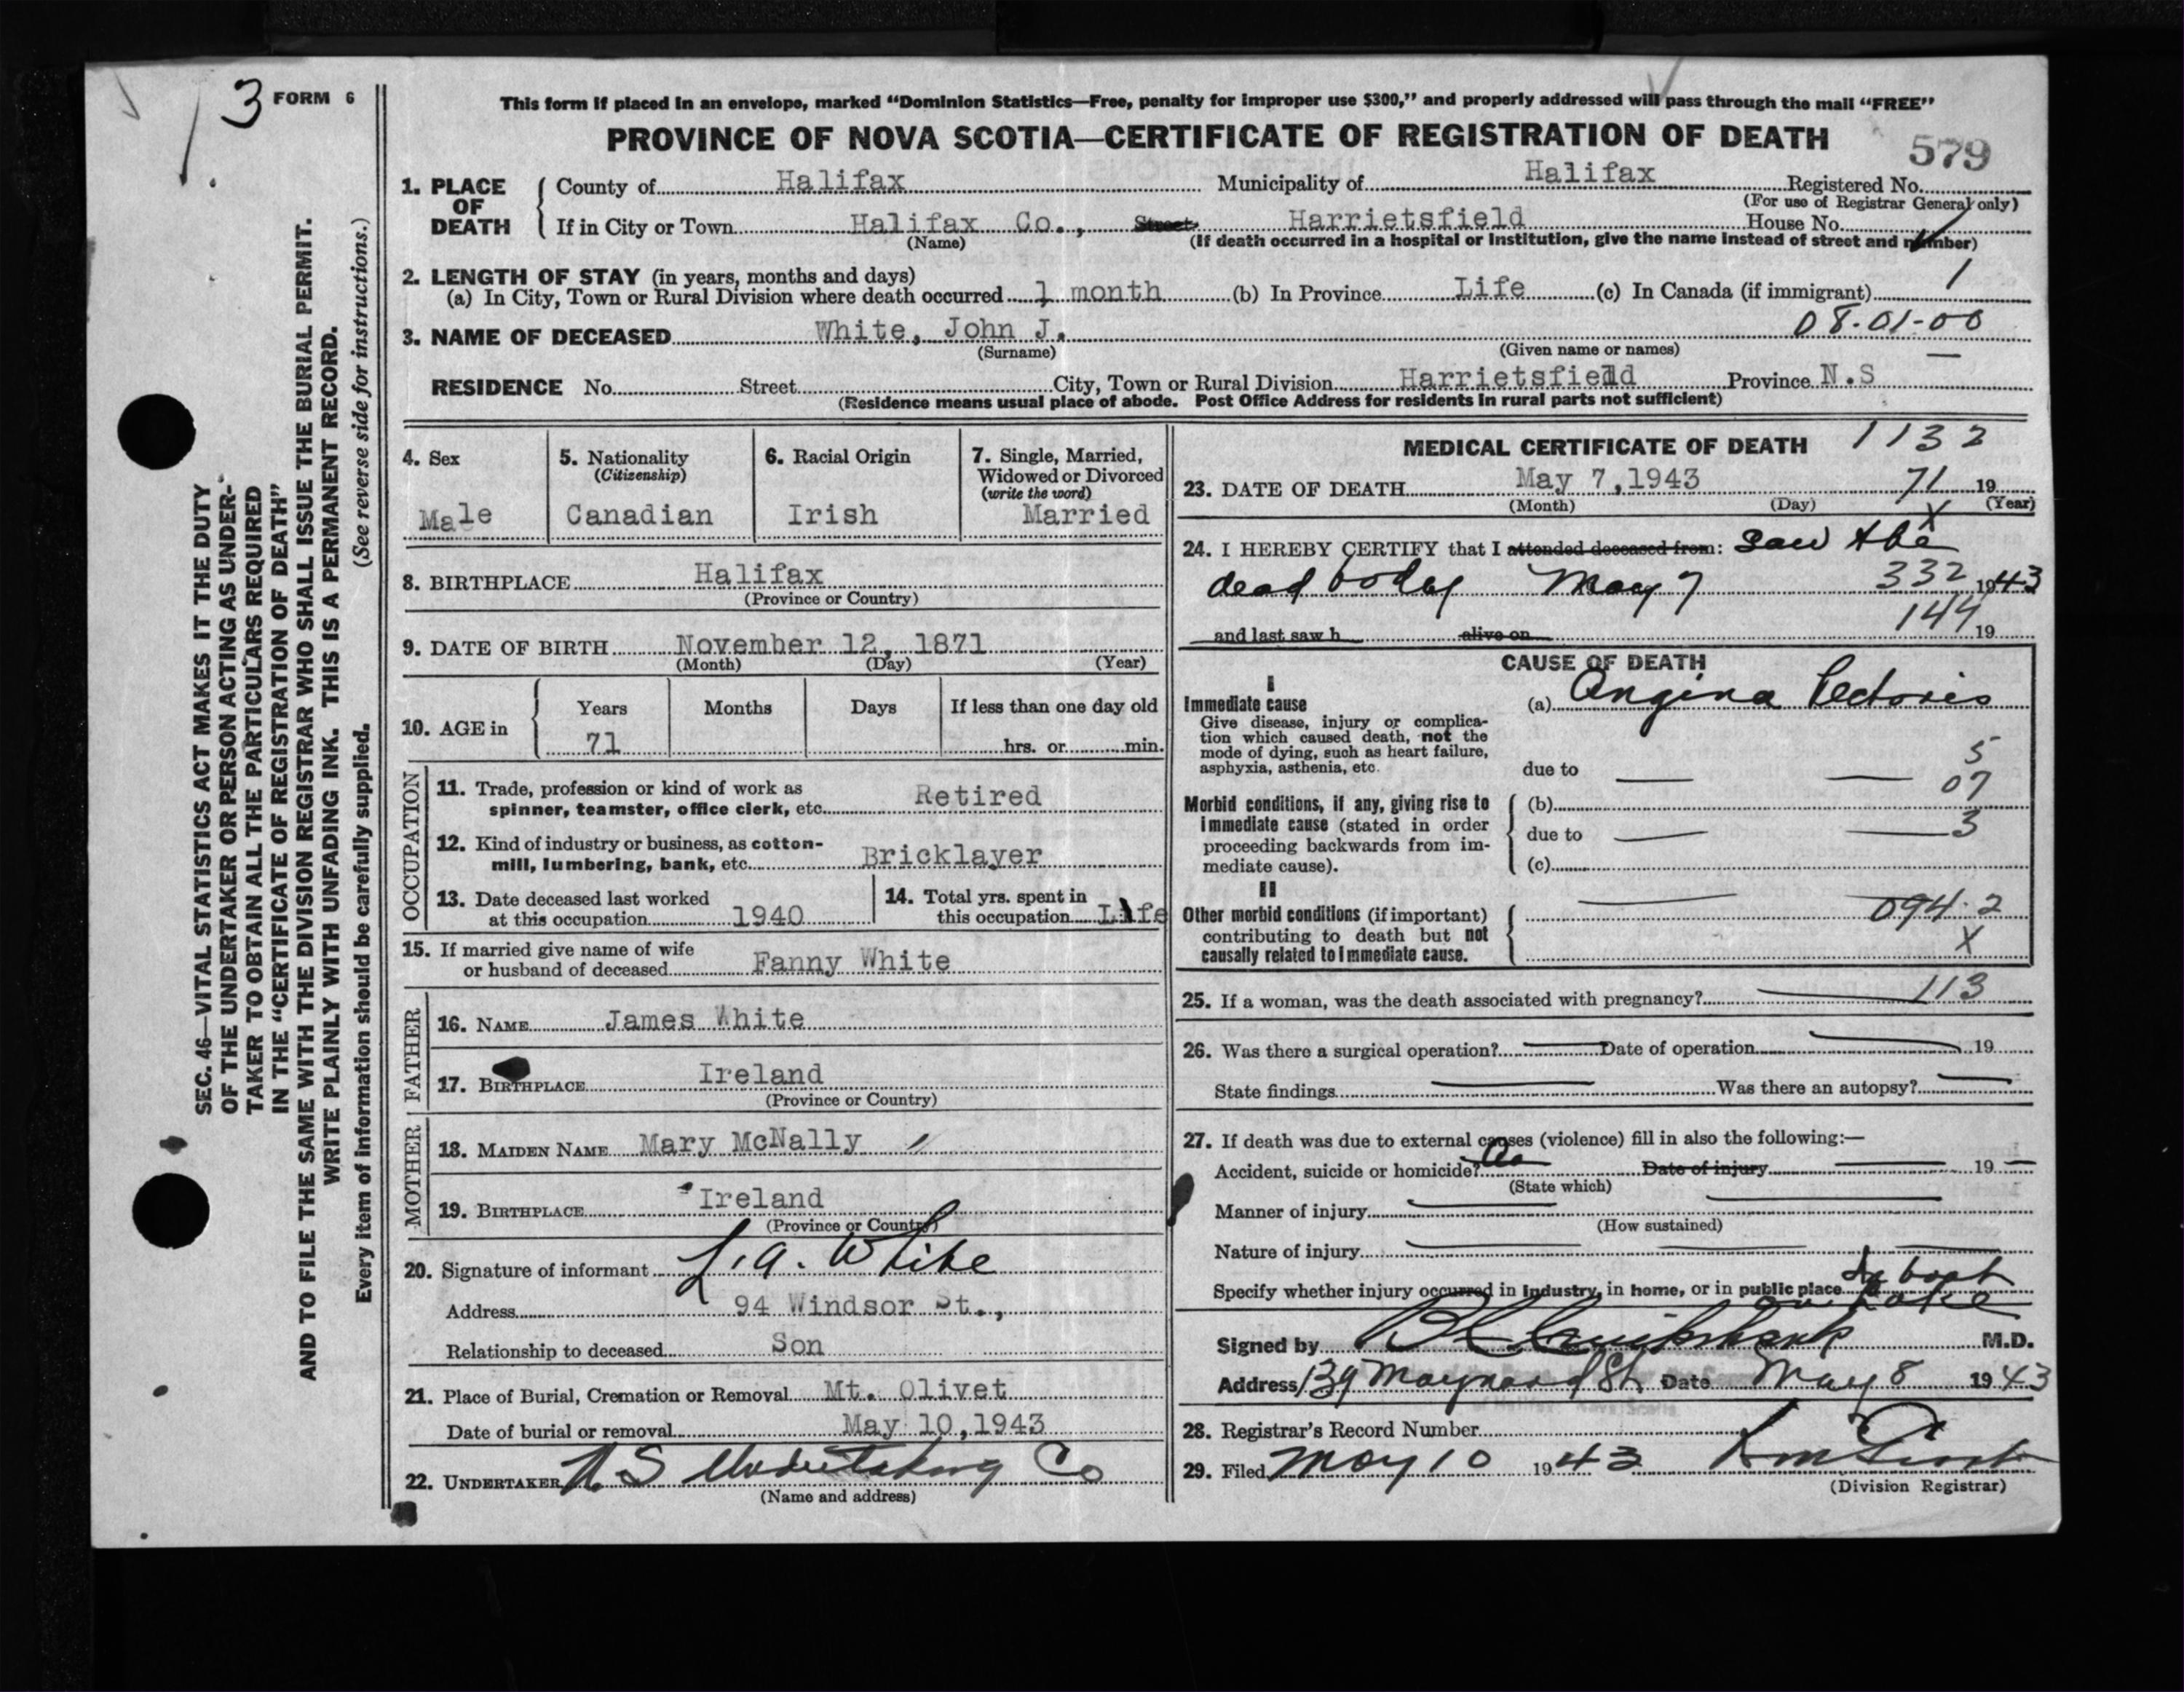 3 FORM 6
This form if placed in an envelope, marked “Dominion Statistics—Free, penalty for improper use $300,” and properly addressed will pass through the mail “FREE”
PROVINCE OF NOVA SCOTIA—CERTIFICATE OF REGISTRATION OF DEATH
579
1. PLACE OF DEATH
County of Halifax Municipality of Halifax Registered No.
(For use of Registrar General only)
If in City or Town Halifax Co., Street Harrietsfield House No.
(Name) (If death occurred in a hospital or institution, give the name instead of street and number)
2. LENGTH OF STAY (in years, months and days) 1
(a) In City, Town or Rural Division where death occurred 1 month (b) In Province Life (c) In Canada (if immigrant)
08-01-00
3. NAME OF DECEASED White, John J.
(Surname) (Given name or names)
RESIDENCE No. Street City, Town or Rural Division Harrietsfield Province N.S
(Residence means usual place of abode. Post Office Address for residents in rural parts not sufficient)
SEC. 46—VITAL STATISTICS ACT MAKES IT THE DUTY
OF THE UNDERTAKER OR PERSON ACTING AS UNDER-
TAKER TO OBTAIN ALL THE PARTICULARS REQUIRED
IN THE “CERTIFICATE OF REGISTRATION OF DEATH”
AND TO FILE THE SAME WITH THE DIVISION REGISTRAR WHO SHALL ISSUE THE BURIAL PERMIT.
WRITE PLAINLY WITH UNFADING INK. THIS IS A PERMANENT RECORD.
Every item of information should be carefully supplied. (See reverse side for instructions.)
4. Sex
Male
5. Nationality
(Citizenship)
Canadian
6. Racial Origin
Irish
7. Single, Married,
Widowed or Divorced
(write the word)
Married
8. BIRTHPLACE Halifax
(Province or Country)
9. DATE OF BIRTH November 12, 1871
(Month) (Day) (Year)
10. AGE in
Years Months Days If less than one day old
71 hrs. or min.
OCCUPATION
11. Trade, profession or kind of work as
spinner, teamster, office clerk, etc. Retired
12. Kind of industry or business, as cotton-
mill, lumbering, bank, etc. Bricklayer
13. Date deceased last worked
at this occupation 1940
14. Total yrs. spent in
this occupation Life
15. If married give name of wife
or husband of deceased Fanny White
FATHER
16. NAME James White
17. BIRTHPLACE Ireland
(Province or Country)
MOTHER
18. MAIDEN NAME Mary McNally
19. BIRTHPLACE Ireland
(Province or Country)
20. Signature of informant L. A. White
Address 94 Windsor St.,
Relationship to deceased Son
21. Place of Burial, Cremation or Removal Mt. Olivet
Date of burial or removal May 10, 1943
22. UNDERTAKER N. S Undertaking Co
(Name and address)
MEDICAL CERTIFICATE OF DEATH 1132
23. DATE OF DEATH May 7, 1943 71 19
(Month) (Day) (Year)
X
24. I HEREBY CERTIFY that I attended deceased from: Saw the
dead body May 7 332 1943
144
and last saw h alive on 19
CAUSE OF DEATH
I
Immediate cause
Give disease, injury or complica-
tion which caused death, not the
mode of dying, such as heart failure,
asphyxia, asthenia, etc.
(a) Angina Pectoris
5
due to
07
Morbid conditions, if any, giving rise to
immediate cause (stated in order
proceeding backwards from im-
mediate cause).
(b)
due to 3
(c)
II
Other morbid conditions (if important)
contributing to death but not
causally related to immediate cause.
094.2
X
25. If a woman, was the death associated with pregnancy? 113
26. Was there a surgical operation? Date of operation 19
State findings Was there an autopsy?
27. If death was due to external causes (violence) fill in also the following:—
Accident, suicide or homicide? Date of injury 19
(State which)
Manner of injury
(How sustained)
Nature of injury
Specify whether injury occurred in industry, in home, or in public place boat
on Lake
Signed by M.D.
Address 139 Maynard St. Date May 8 1943
28. Registrar's Record Number
29. Filed May 10 1943
(Division Registrar)